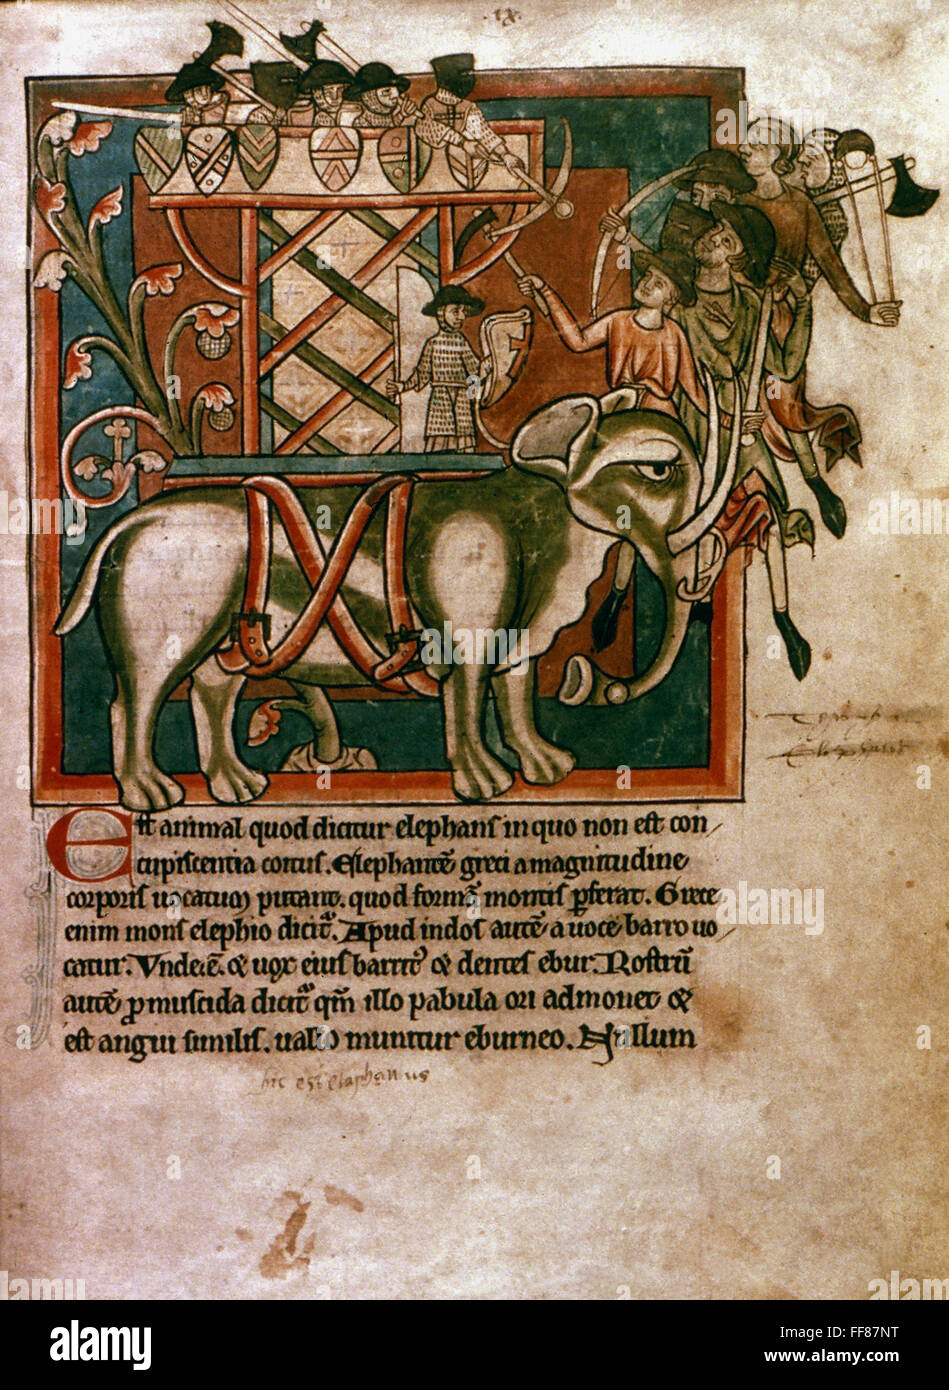 .ix.
Est animal quod dicitur elephans in quo non est con/
cupiscentia coitus. Elephantē greci a magnitudine
corporis uocatum putant. quod formā montis p̄ferat. Grece
enim mons elephio dicit᷑. Apud indos autē a uoce barro uo/
catur. Vnde ē. & uox eius barrit᷑ & dentes ebur. Rostrū
autē ꝓmuscida dicit᷑ qm̄ illo pabula ori admouet &
est angui similis. uallo munitur eburneo. Nullum
hic est elaphanus
Elephant
alamy stock photo
FF87NT
www.alamy.com